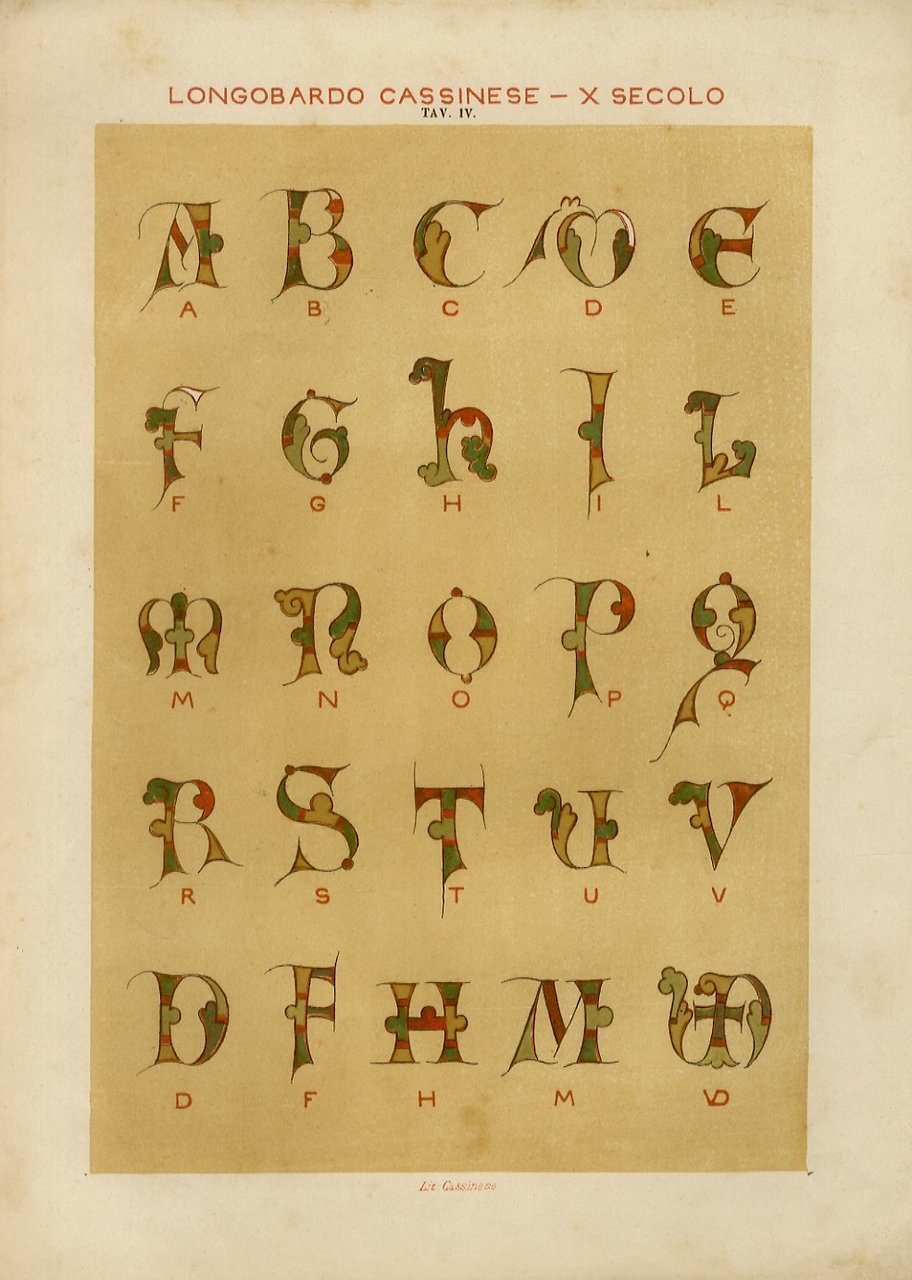 LONGOBARDO CASSINESE — X SECOLO
TAV. IV.
A B C D E
A B C D E
F G h I L
F G H I L
M N O P Q
M N O P Q
R S T U V
R S T U V
D F H M VD
D F H M VD
Lit Cassinese